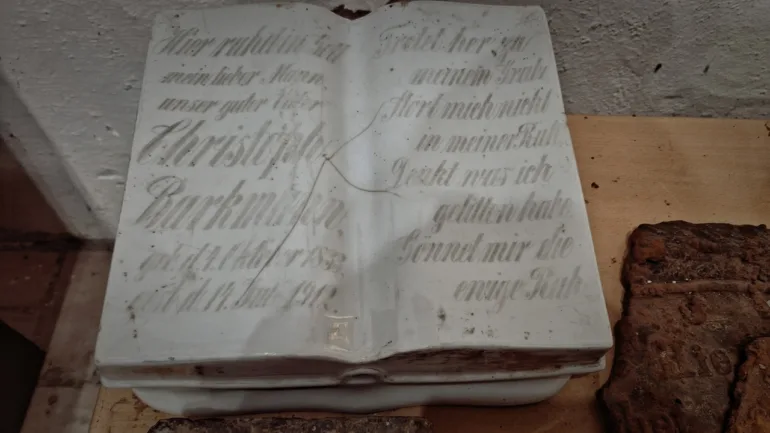 Hier ruht in Gott
mein lieber Mann
unser guter Vater
Christoph
Barkmann
geb. d. 4. Oktober
gest. d. 14.
Tretet her an
meinem Grabe
Stört mich nicht
in meiner Ruh,
Denkt was ich
gelitten habe
Gönnet mir die
ewige Ruh.